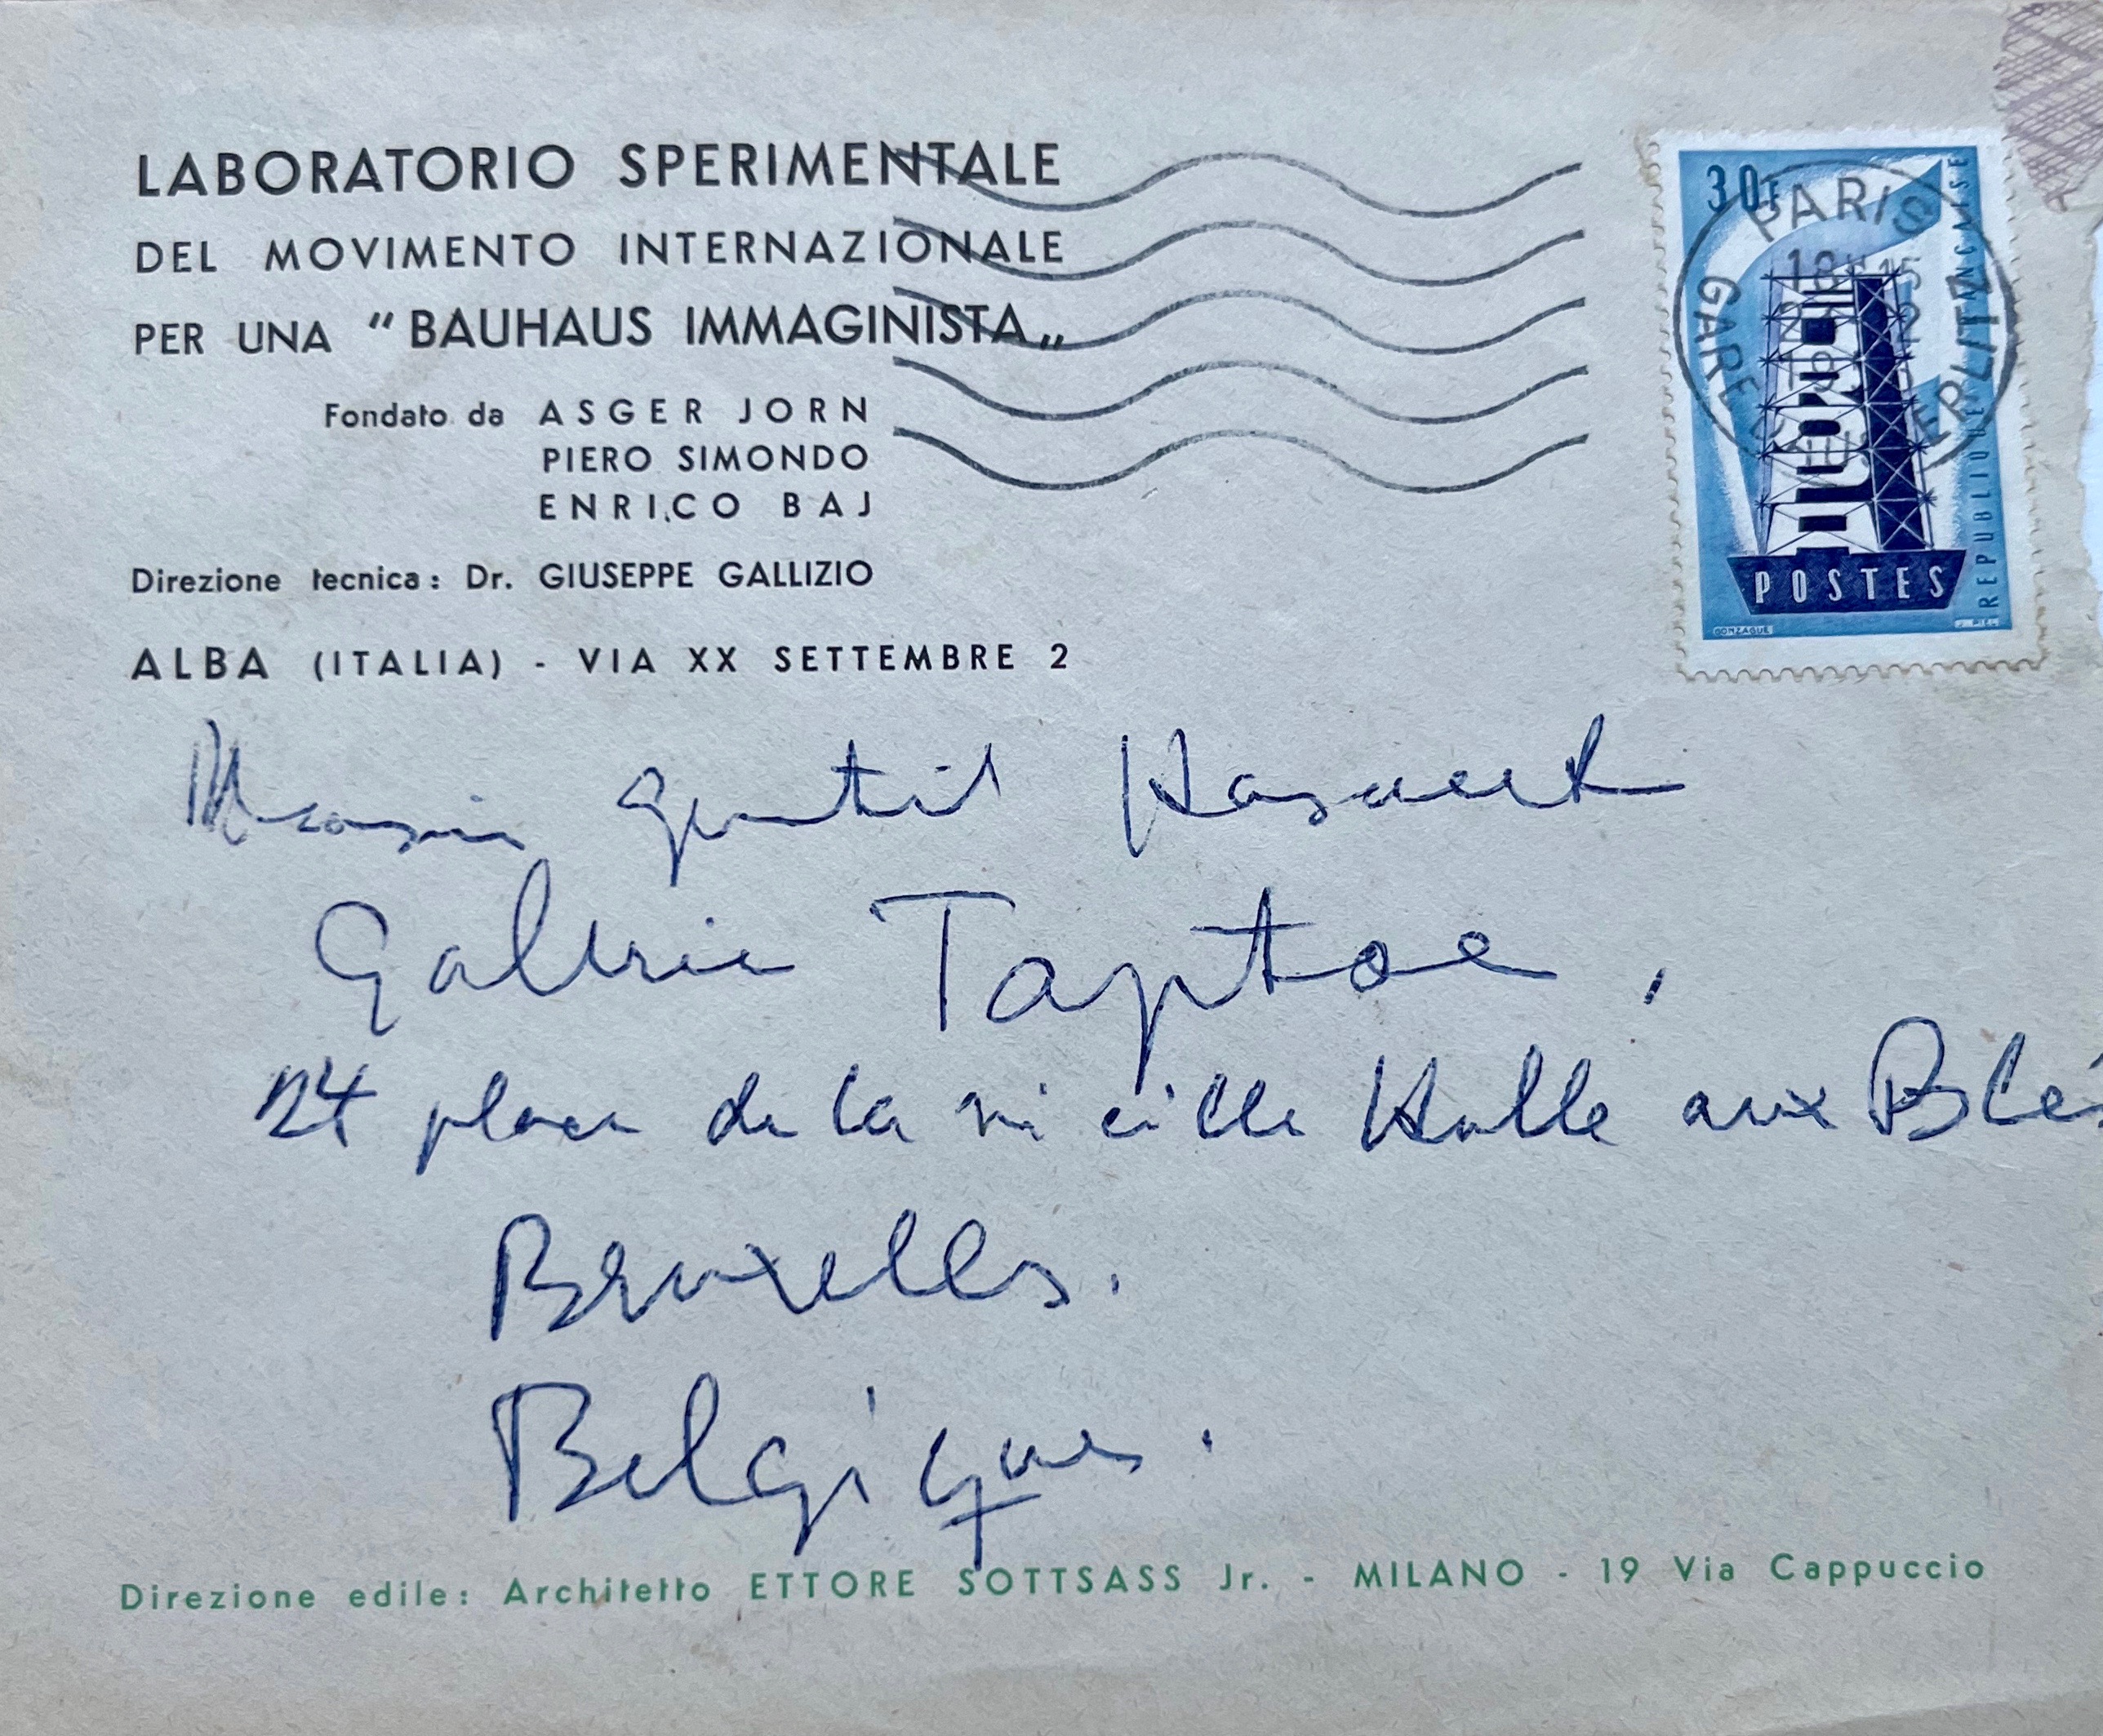 LABORATORIO SPERIMENTALE
DEL MOVIMENTO INTERNAZIONALE
PER UNA “BAUHAUS IMMAGINISTA„
Fondato da ASGER JORN
PIERO SIMONDO
ENRICO BAJ
Direzione tecnica: Dr. GIUSEPPE GALLIZIO
ALBA (ITALIA) - VIA XX SETTEMBRE 2
30F
REPUBLIQUE FRANÇAISE
POSTES
GONZAGUE
J. PIEL
PARIS
18H15
GARE D'AUSTERLITZ
gentil Hasaert
Galerie Taptoe,
24 place de la vieille Halle aux Blés
Bruxelles.
Belgique.
Direzione edile: Architetto ETTORE SOTTSASS Jr. - MILANO - 19 Via Cappuccio